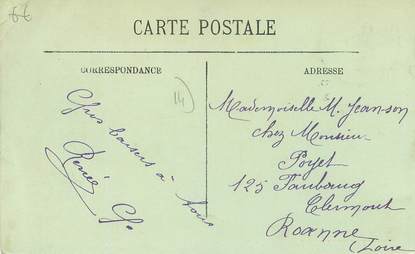 66
CARTE POSTALE
CORRESPONDANCE
ADRESSE
14
Gros baisers à tous
Renée
Mademoiselle M. Jeanson
chez Monsieur
Poyet
125 Faubourg
Clermont
Roanne
Loire